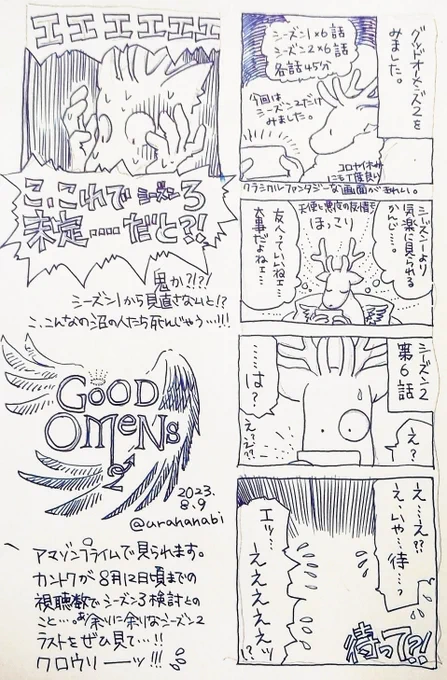 グッドオーメンズ2を
みました。
シーズン1×6話
シーズン2×6話
各話45分
今回は
シーズン2だけ
みました。
コロナイオサ
にも丁度良い
クラシカルファンタジーな画面がきれい。
シーズン1より
気楽に見られる
かんじ…。
天使と悪魔の友情を
ほっさり
友人っていいねェ…
大事だよねェ…
シーズン2
第6話
え?
……は?
え?え?
え…え??
え、いや…待…?
エッ…
えええええッ
!?
待って?!
エエエエエエ
こ、これで シーズン3
未定……だと?!
鬼か?!?!
シーズン1から見直さないと!?
こ、こんなの沼の人たち死んじゃう…!!!
GOOD
OMENS
2023.
8.9
@urahanabi
アマゾンプライムで見られます。
カントクが8月12日頃までの
視聴数でシーズン3検討との
こと…。余りに余りなシーズン2
ラストをぜひ見て…!!
クロウリーーッ!!!